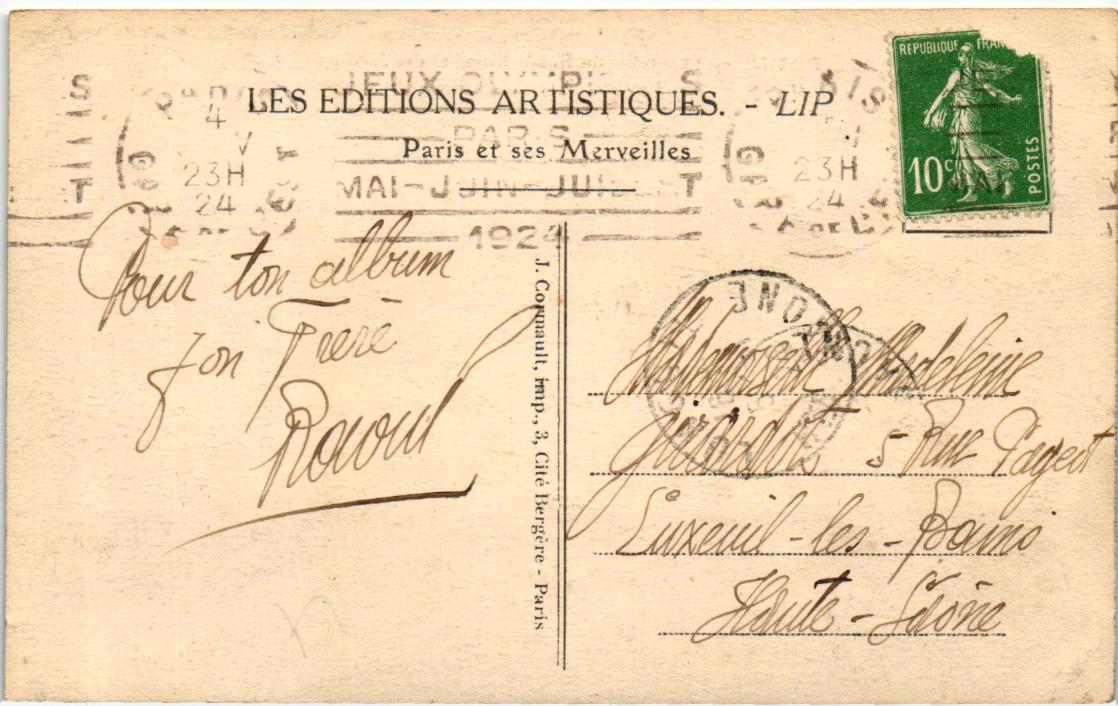 LES EDITIONS ARTISTIQUES. - LIP
Paris et ses Merveilles
REPUBLIQUE FRAN
10c
POSTES
JEUX OLYMPIQUES
PARIS
MAI-JUIN-JUILLET
1924
4
V
23H
24
23H
24
S
T
Pour ton album
Ton Frère
Raoul
J. Cormault, imp., 3, Cité Bergère - Paris
HTE SAONE
Mademoiselle Madeleine
Girardot 5 Rue Pagest
Luxeuil-les-Bains
Haute-Saône